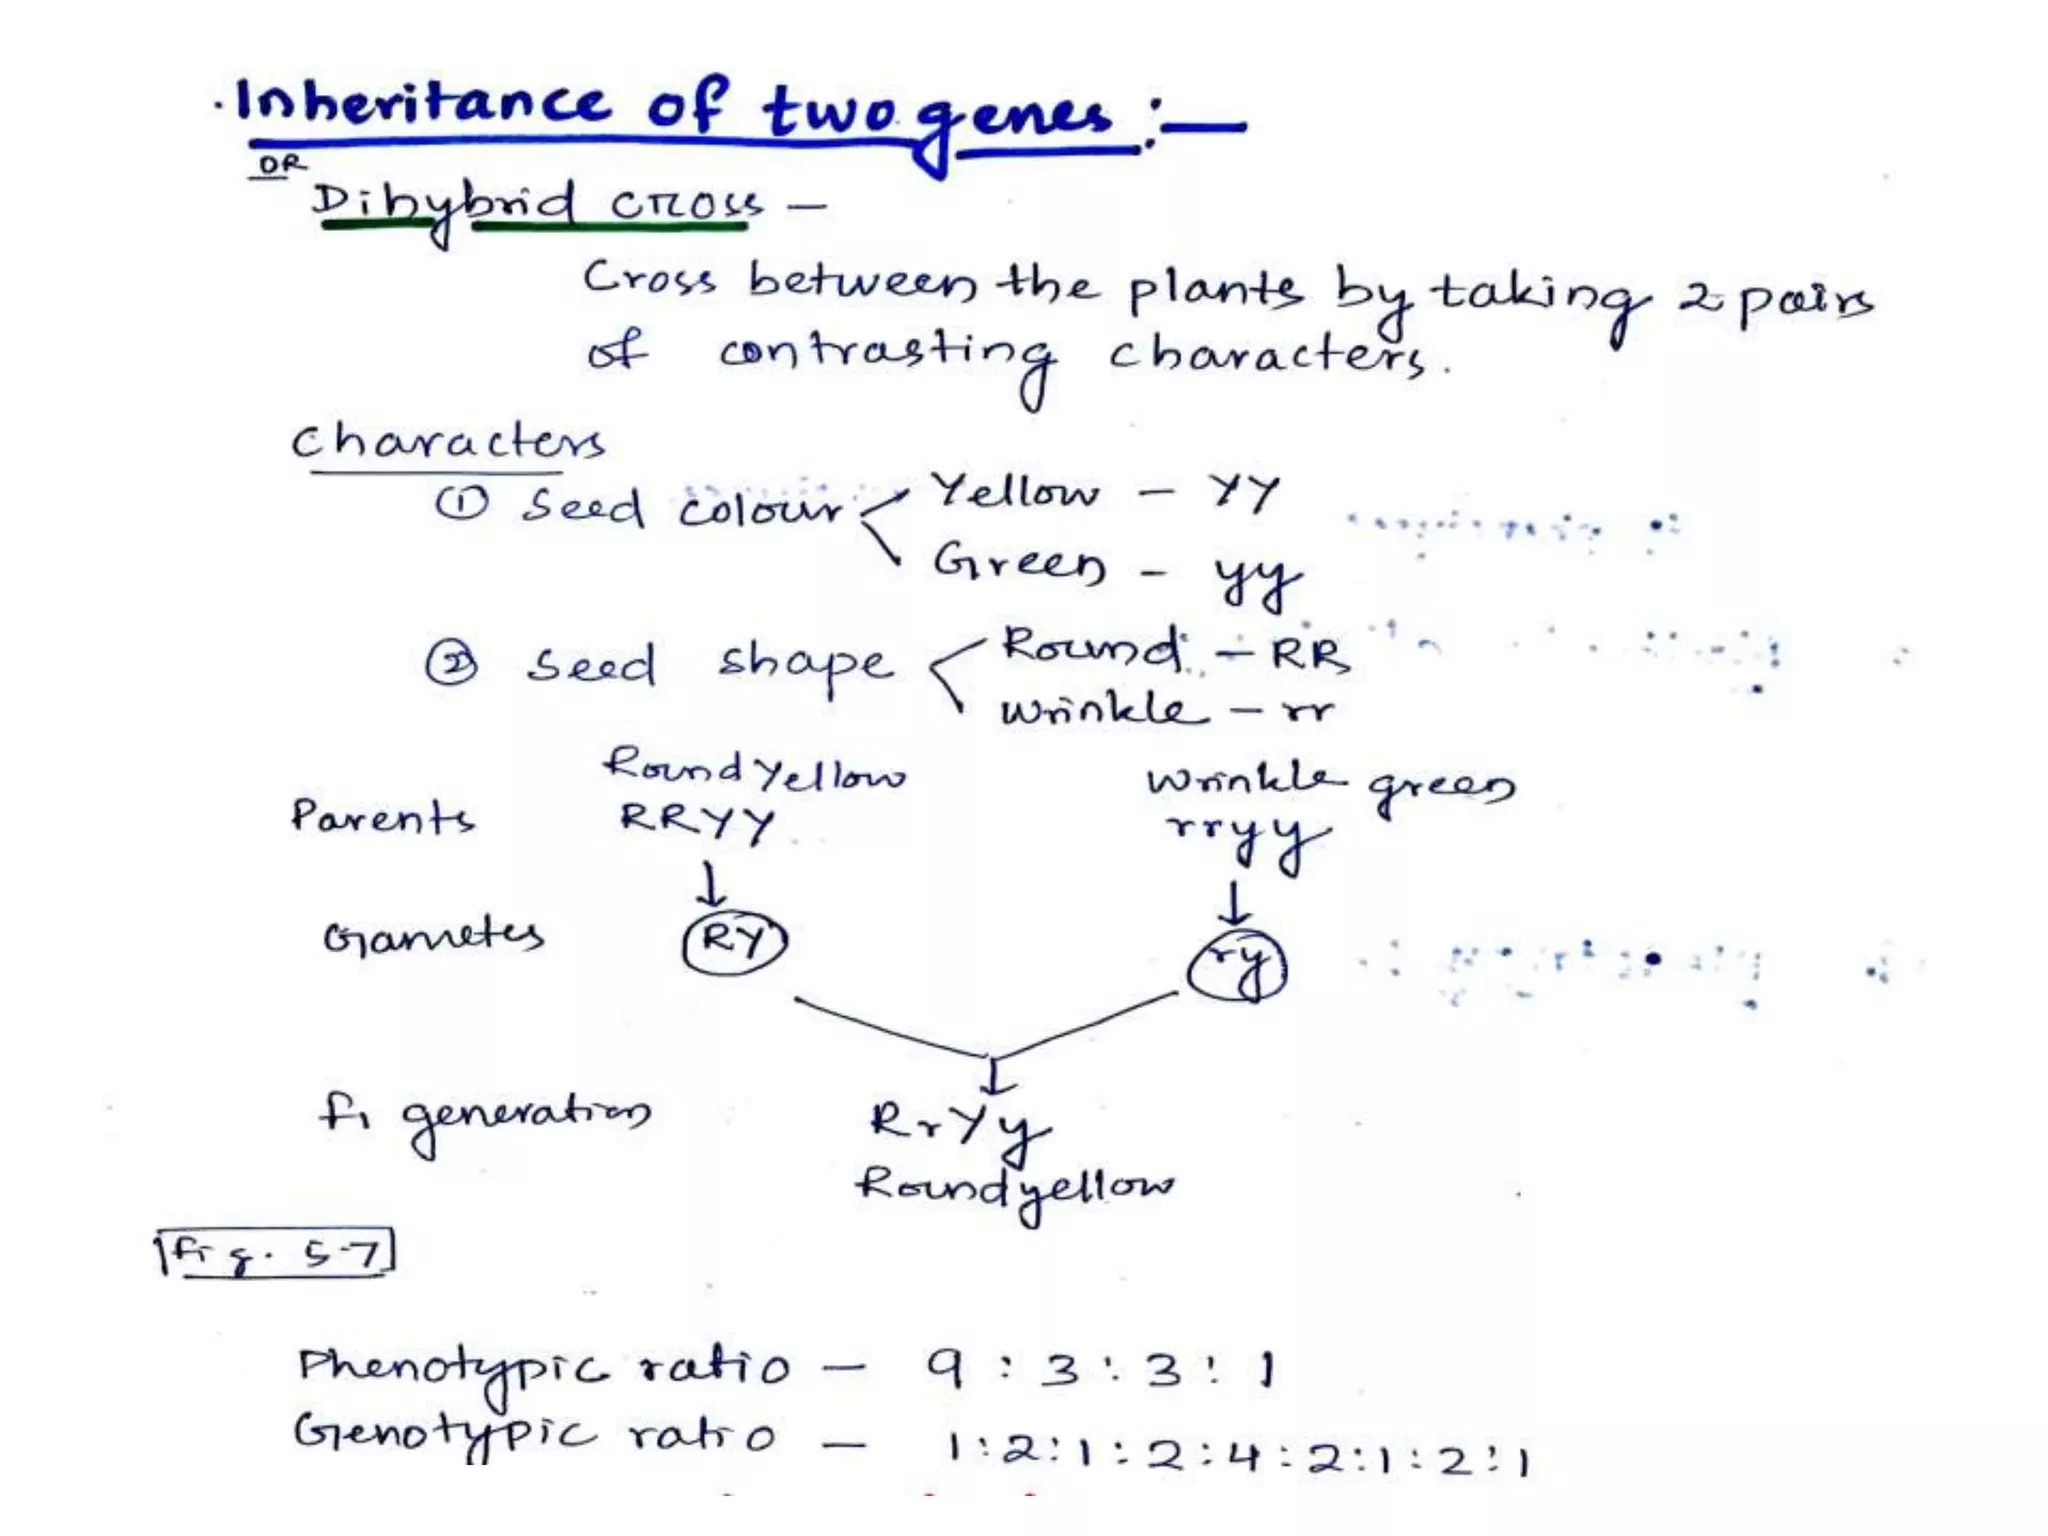 . Inheritance of two genes :—
OR
Dihybrid cross —
Cross between the plants by taking 2 pairs
of contrasting characters.
Characters
① Seed colour Yellow - YY
Green - yy
② Seed shape Round - RR
Wrinkle - rr
Round Yellow Wrinkle green
Parents RRYY rryy
Gametes RY ry
F1 generation RrYy
Round yellow
Fig. 5.7
Phenotypic ratio - 9 : 3 : 3 : 1
Genotypic ratio - 1:2:1:2:4:2:1:2:1